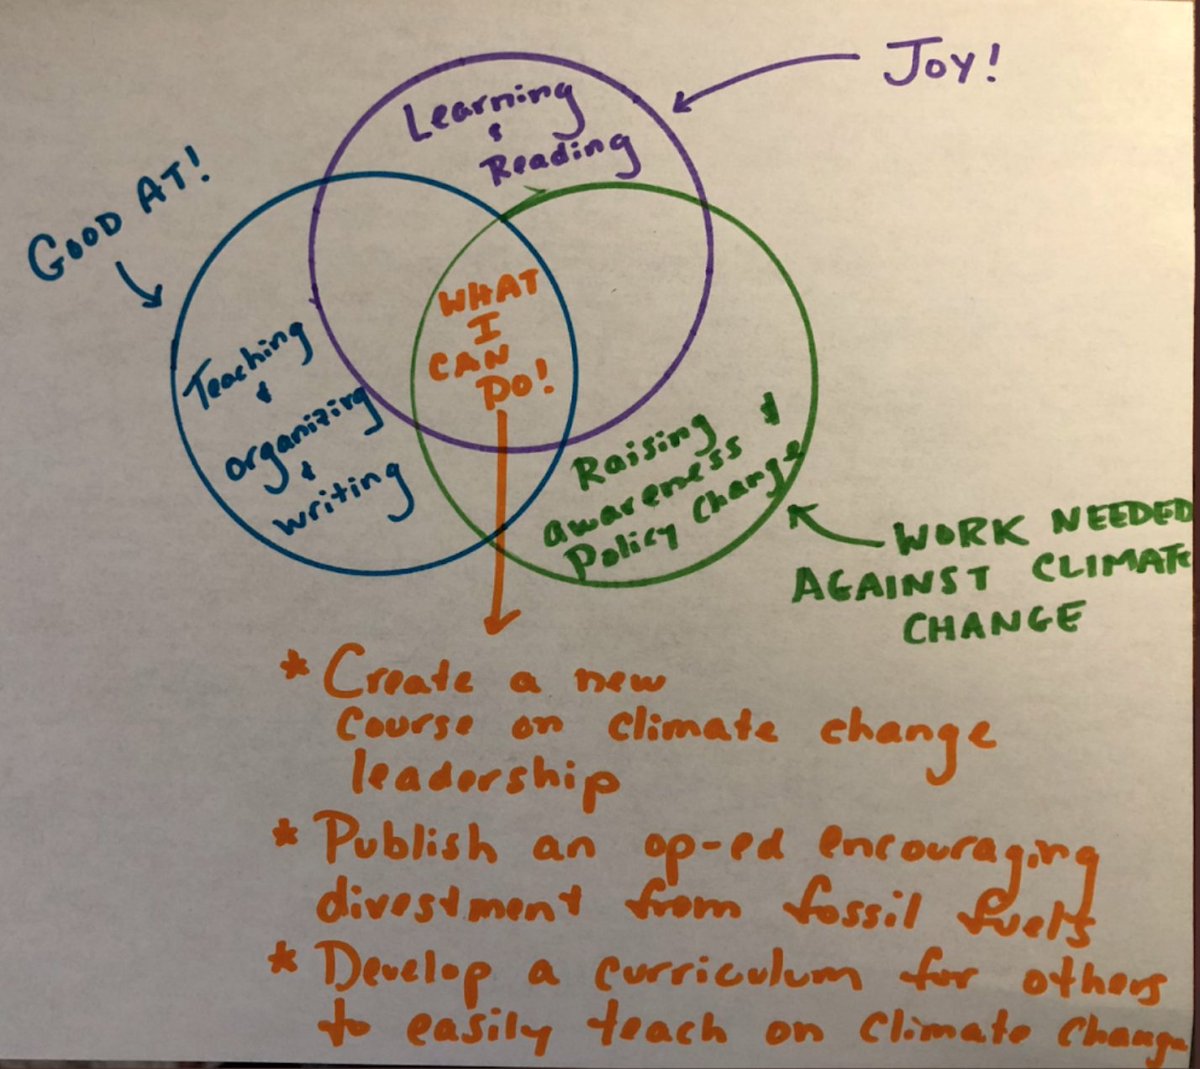 JOY!
Learning
&
Reading
GOOD AT!
WHAT
I
CAN
DO!
Teaching
&
organizing
&
writing
Raising
awareness &
Policy Change
WORK NEEDED
AGAINST CLIMATE
CHANGE
* Create a new
course on climate change
leadership
* Publish an op-ed encouraging
divestment from fossil fuels
* Develop a curriculum for others
to easily teach on climate change